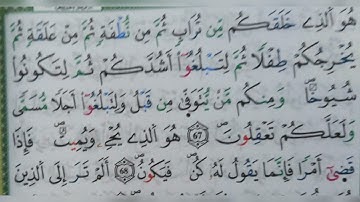 هُوَ اَلذِے خَلَقَكُم مِّن تُرَابٖ ثُمَّ مِن نُّطْفَةٖ ثُمَّ مِنْ عَلَقَةٖ ثُمَّ
يُخْرِجُكُمْ طِفْلاٗ ثُمَّ لِتَبْلُغُوٓاْ أَشُدَّكُمْ ثُمَّ لِتَكُونُواْ
شُيُوخاٗ وَمِنكُم مَّنْ يُّتَوَفّٰي مِن قَبْلُ وَلِتَبْلُغُوٓاْ أَجَلاٗ مُّسَمّيٗ
وَلَعَلَّكُمْ تَعْقِلُونَ 67 هُوَ اَلذِے يُحْيِۦ وَيُمِيتُ فَإِذَا
قَضٰيٓ أَمْراٗ فَإِنَّمَا يَقُولُ لَهُۥ كُن فَيَكُونُ 68 أَلَمْ تَرَ إِلَى اَلذِينَ